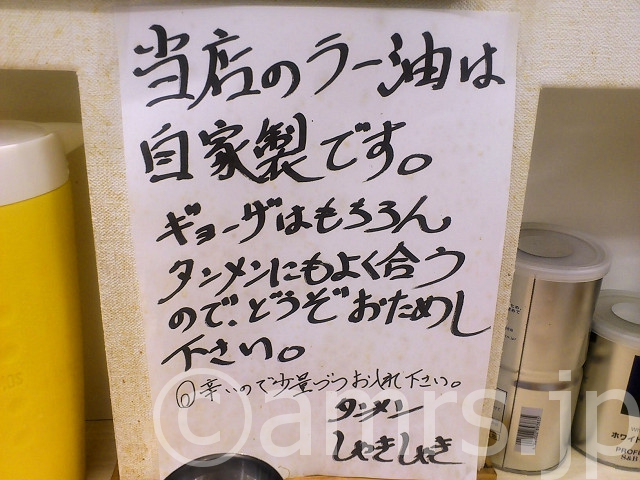 当店のラー油は
自家製です。
ギョーザはもちろん
タンメンにもよく合う
ので、どうぞおためし
下さい。
辛いので少量づつお入れ下さい。
タンメン
しゃきしゃき
©amrs.jp
ホワイト
PROFE